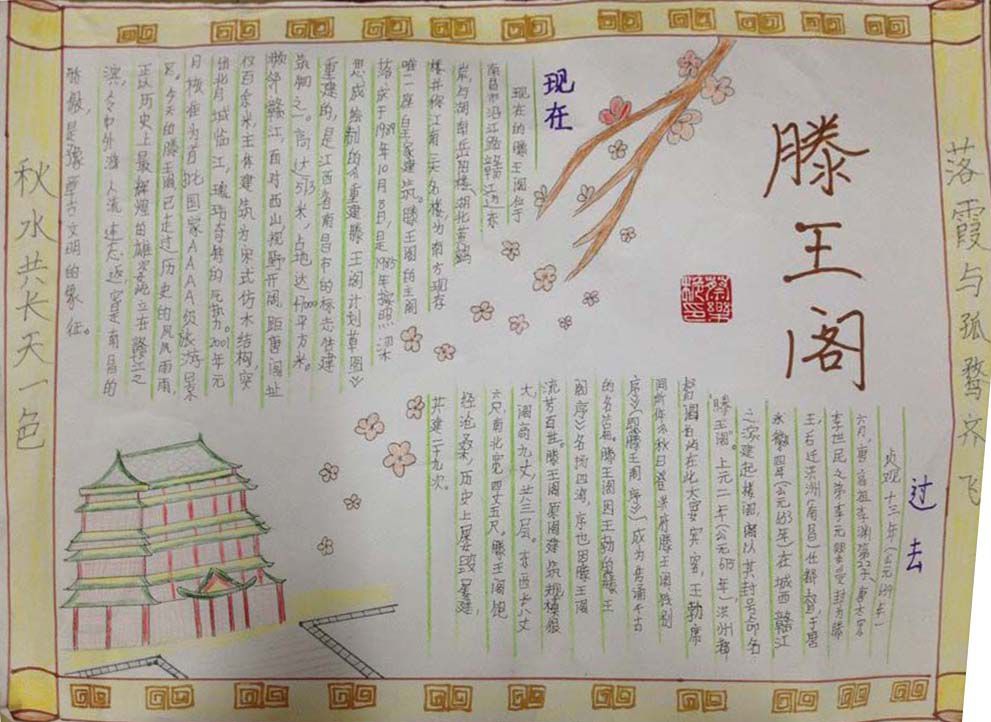 滕王阁
落霞与孤鹜齐飞
秋水共长天一色
过去
贞观十三年(公元639年)
六月,唐高祖李渊第22子、唐太宗
李世民之弟李元婴受封为滕
王,后迁洪州(南昌)任都督,于唐
永徽四年(公元653年)在城西赣江
之滨建起楼阁,阁以其封号命名
"滕王阁"。上元二年(公元675年),洪州都
督阎伯屿在此大宴宾客,王勃席
间所作《秋日登洪府滕王阁饯别
序》(即《滕王阁序》)成为传诵千古
的名篇。滕王阁因王勃的《滕王
阁序》名扬四海,序也因滕王阁
流芳百世。滕王阁原阁建筑规模很
大,阁高九丈,共三层。东西长八丈
六尺,南北宽四丈五尺。滕王阁饱
经沧桑,历史上屡毁屡建,
共建二十九次。
现在
现在的滕王阁位于
南昌市沿江路赣江边东
岸,与湖南岳阳楼、湖北黄鹤
楼并称江南三大名楼,为南方现存
唯一一座皇家建筑。滕王阁的主阁
落成于1989年10月8日,是1985年按照梁
思成绘制的《重建滕王阁计划草图》
重建的,是江西省南昌市的标志性建
筑物之一。高达57.5米,占地达47000平方米。
濒邻赣江,面对西山,视野开阔,距唐阁址
仅百余米,主体建筑为宋式仿木结构,突
出背城临江,瑰玮奇特的气势。2001年元
月核准为首批国家AAAA级旅游景
区。今天的滕王阁已走过历史的风风雨雨,
正以历史上最辉煌的雄姿屹立在赣江之
滨,令中外游人流连忘返,它是南昌的
骄傲,是豫章古文明的象征。